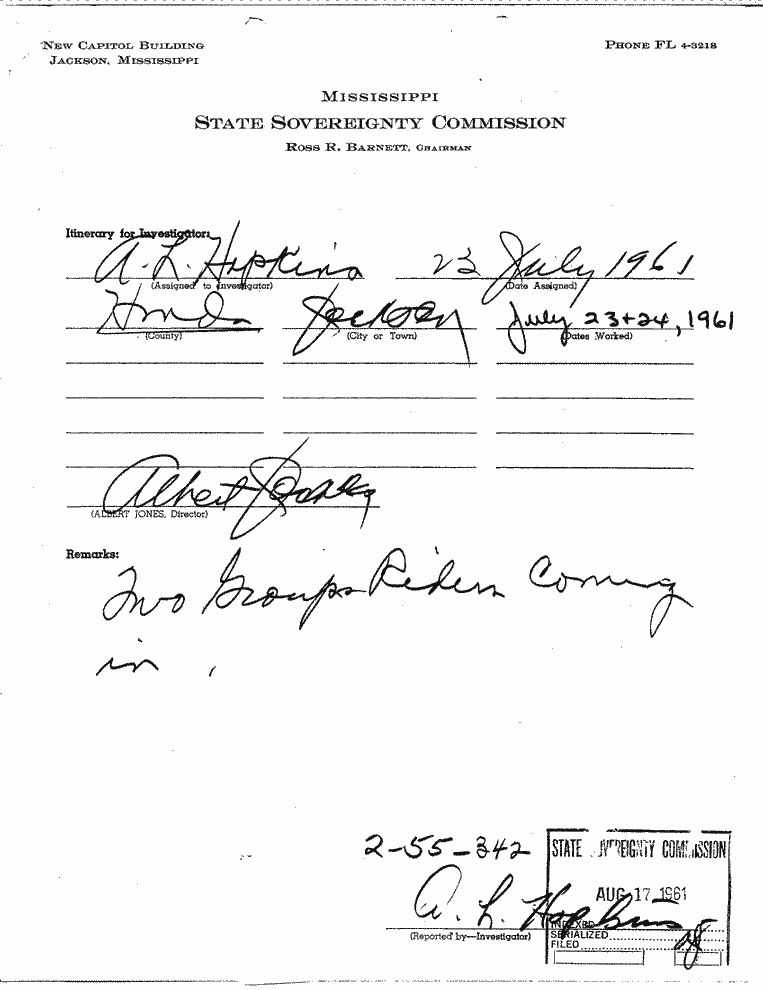 NEW CAPITOL BUILDING
JACKSON, MISSISSIPPI
PHONE FL 4-3218
MISSISSIPPI
STATE SOVEREIGNTY COMMISSION
ROSS R. BARNETT, CHAIRMAN
Itinerary for Investigator:
A. L. Hopkins 23 July 1961
(Assigned to Investigator) (Date Assigned)
Hinds Jackson July 23+24, 1961
(County) (City or Town) (Dates Worked)
Albert Jones
(ALBERT JONES, Director)
Remarks:
Two Groups Riders Coming
in.
2-55-342
STATE SOVEREIGNTY COMMISSION
AUG 17 1961
A. L. Hopkins
(Reported by—Investigator)
INDEXED
SERIALIZED
FILED